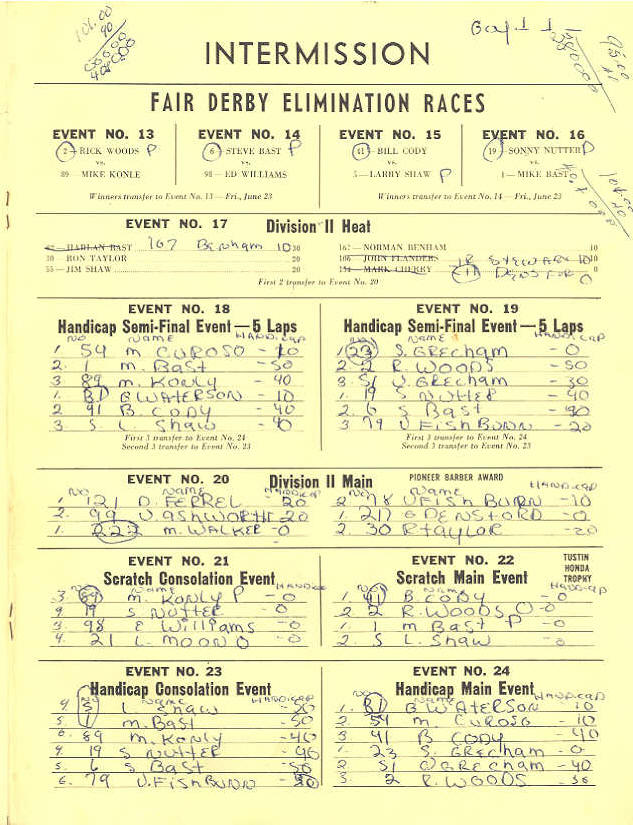 106.00
INTERMISSION
FAIR DERBY ELIMINATION RACES
EVENT NO. 13
2—RICK WOODS P
vs.
89—MIKE KONLE
EVENT NO. 14
6—STEVE BAST P
vs.
98—ED WILLIAMS
Winners transfer to Event No. 13—Fri., June 23
EVENT NO. 15
41—BILL CODY
vs.
5—LARRY SHAW P
EVENT NO. 16
19—SONNY NUTTER P
vs.
1—MIKE BAST
Winners transfer to Event No. 14—Fri., June 23
EVENT NO. 17 Division II Heat
HARLAN BAST 167 Benham 10 30
30—RON TAYLOR 20
55—JIM SHAW 20
167—NORMAN BENHAM 10
106—JOHN FLANDERS 10
154—MARK CHERRY 0
First 2 transfer to Event No. 20
EVENT NO. 18
Handicap Semi-Final Event—5 Laps
NO NAME HANDICAP
1. 54 M CUROSO - 10
2. 1 M. BAST - 50
3 89 M. KONLY - 40
1. B1 G WATERSON - 10
2 41 B. CODY - 40
3. 5 L. Shaw - 40
First 3 transfer to Event No. 24
Second 3 transfer to Event No. 23
EVENT NO. 19
Handicap Semi-Final Event—5 Laps
NO NAME HANDICAP
1 23 S. GRECHAM - 0
2 2 R. WOODS - 50
3 51 J. GRECHAM - 30
1. 19 S NUTTER - 40
2. 6 S BAST - 40
3 79 J FISHBURN - 20
First 3 transfer to Event No. 24
Second 3 transfer to Event No. 23
EVENT NO. 20 Division II Main
PIONEER BARBER AWARD
NO NAME HANDICAP
1. 121 D. FERREL 20
2. 99 J. ASHWORTH 20
1. 222 M. WALKER - 0
NAME HANDICAP
2 98 J FISHBURN - 10
1. 217 G DENSFORD - 0
2. 30 R TAYLOR - 20
EVENT NO. 21
Scratch Consolation Event
NO NAME HANDICAP
3. 89 M. KONLY P - 0
4 19 S NUTTER - 0
3. 98 E Williams - 0
4. 21 L. MOON - 0
EVENT NO. 22
Scratch Main Event
TUSTIN
HONDA
TROPHY
NO NAME HANDICAP
1. 41 B. CODY - 0
2 2 R. WOODS - 0
1. 1 M BAST P - 0
2. 5 L. SHAW - 0
EVENT NO. 23
Handicap Consolation Event
NO NAME HANDICAP
4 5 L Shaw - 50
5 1 M. BAST - 50
6. 89 M. KONLY - 40
4 19 S NUTTER - 40
5. 6 S BAST - 50
6. 79 J. FISHBURN - 20
EVENT NO. 24
Handicap Main Event
NO NAME HANDICAP
1. B1 G WATERSON - 10
2 54 M. CUROSO - 10
3. 41 B. CODY - 40
1. 23 S. GRECHAM - 0
2. 51 J GRECHAM - 40
3. 2 R. WOODS - 50